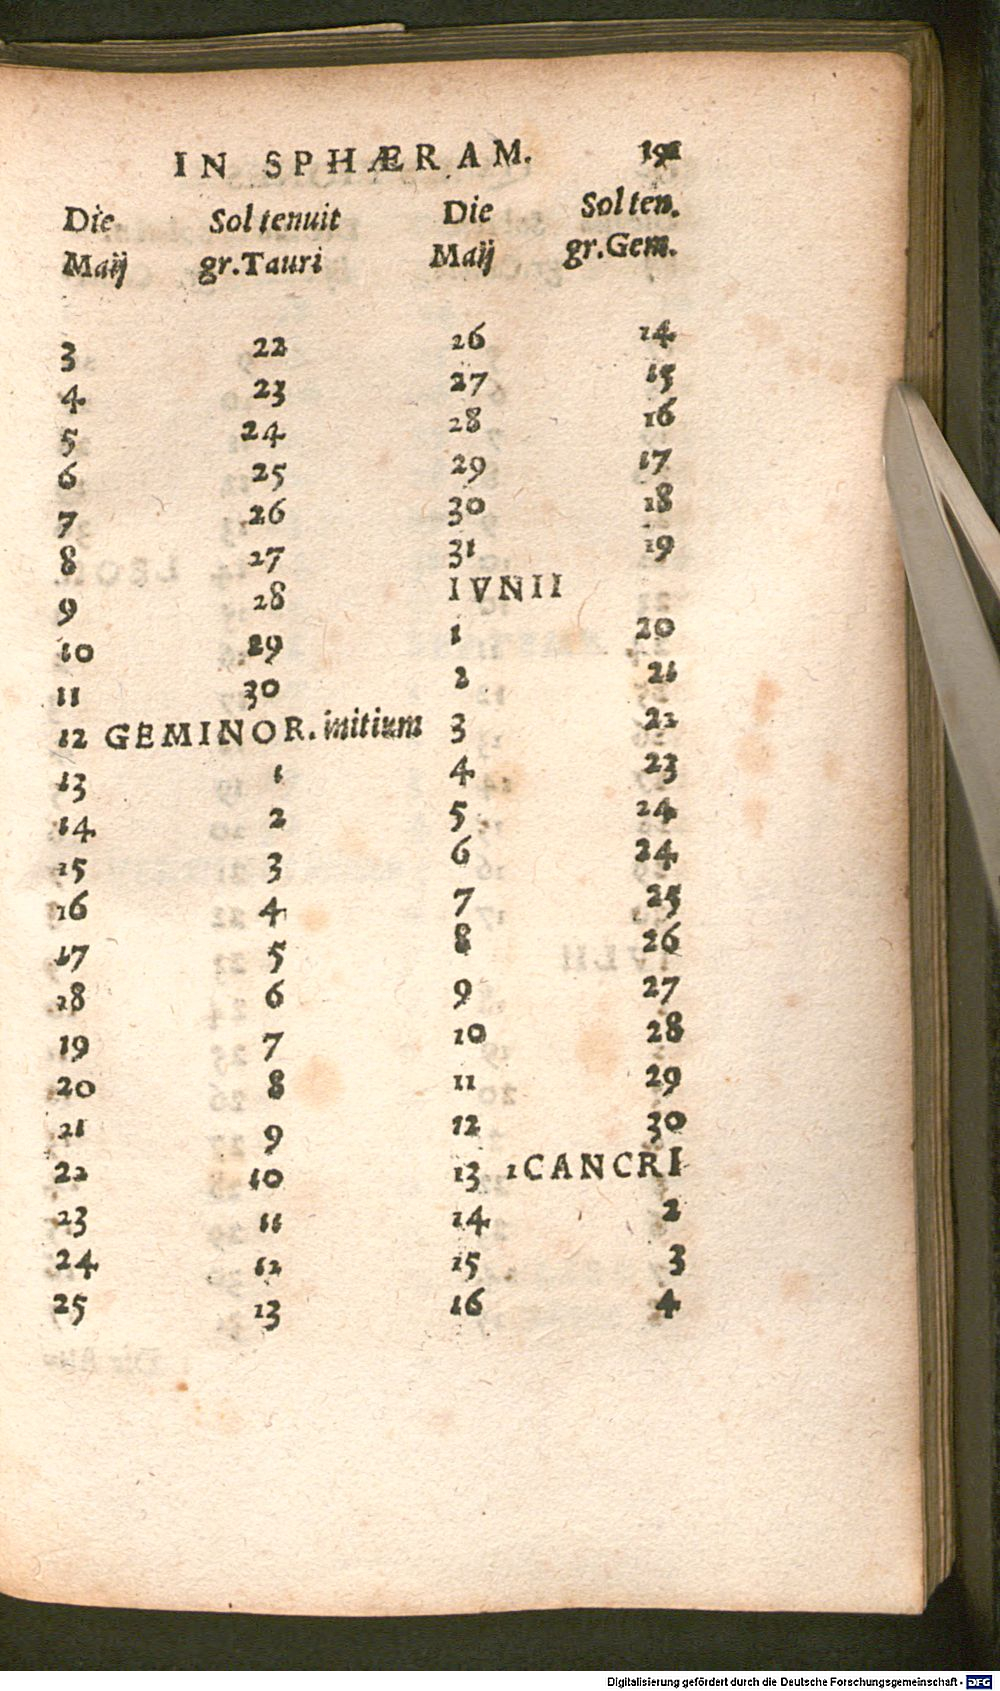 IN SPHÆRAM.
Die Sol tenuit Die Sol ten.
Maij gr. Tauri Maij gr. Gem.
3 22 26 14
4 23 27 15
5 24 28 16
6 25 29 17
7 26 30 18
8 27 31 19
9 28 IVNII
10 29 1 20
11 30 2 21
12 GEMINOR. initium 3 22
13 1 4 23
14 2 5 24
15 3 6 24
16 4 7 25
17 5 8 26
18 6 9 27
19 7 10 28
20 8 11 29
21 9 12 30
22 10 13 1 CANCRI
23 11 14 2
24 12 15 3
25 13 16 4
Digitalisierung gefördert durch die Deutsche Forschungsgemeinschaft - DFG